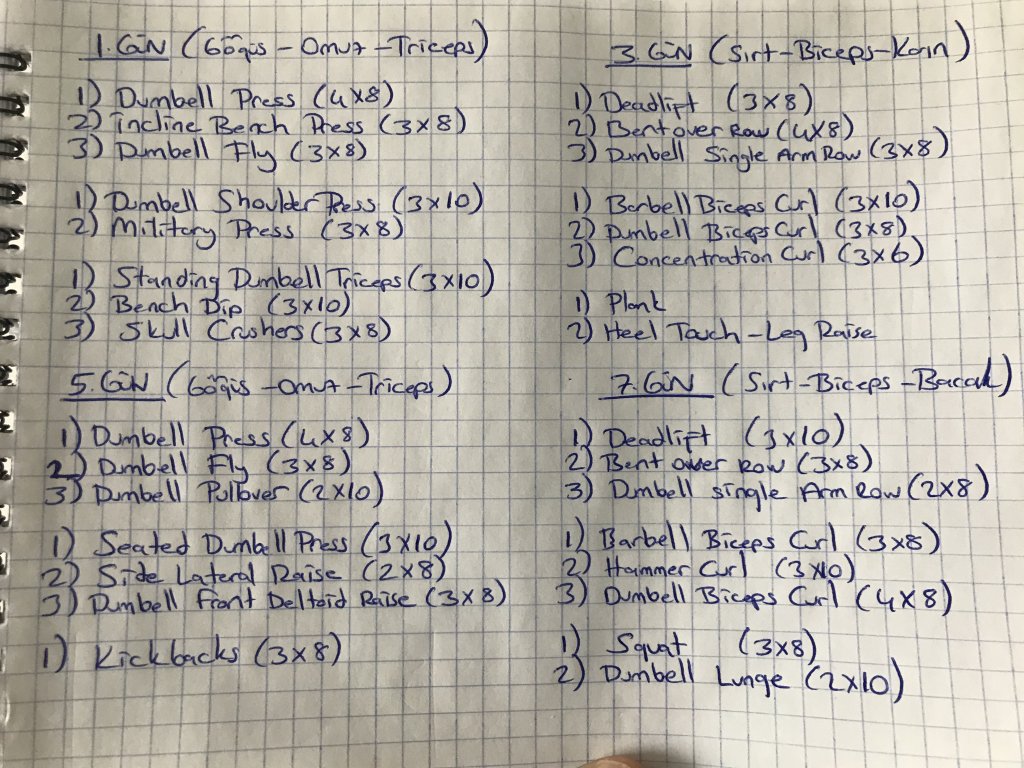 1.GÜN (Göğüs - Omuz - Triceps)
1) Dumbell Press (4x8)
2) incline Bench Press (3x8)
3) Dumbell Fly (3x8)
1) Dumbell Shoulder Press (3x10)
2) Military Press (3x8)
1) Standing Dumbell Triceps (3x10)
2) Bench Dip (3x10)
3) Skull Crushers (3x8)
3.GÜN (Sırt-Biceps-Karın)
1) Deadlift (3x8)
2) Bent over Row (4x8)
3) Dumbell Single Arm Row (3x8)
1) Barbell Biceps Curl (3x10)
2) Dumbell Biceps Curl (3x8)
3) Concentration Curl (3x6)
1) Plank
2) Heel Touch - Leg Raise
5.GÜN (Göğüs - Omuz - Triceps)
1) Dumbell Press (4x8)
2) Dumbell Fly (3x8)
3) Dumbell Pullover (2x10)
1) Seated Dumbell Press (3x10)
2) Side Lateral Raise (2x8)
3) Dumbell Front Deltoid Raise (3x8)
1) Kickbacks (3x8)
7.GÜN (Sırt-Biceps-Bacak)
1) Deadlift (3x10)
2) Bent over Row (3x8)
3) Dumbell single Arm Row (2x8)
1) Barbell Biceps Curl (3x8)
2) Hammer Curl (3x10)
3) Dumbell Biceps Curl (4x8)
1) Squat (3x8)
2) Dumbell Lunge (2x10)